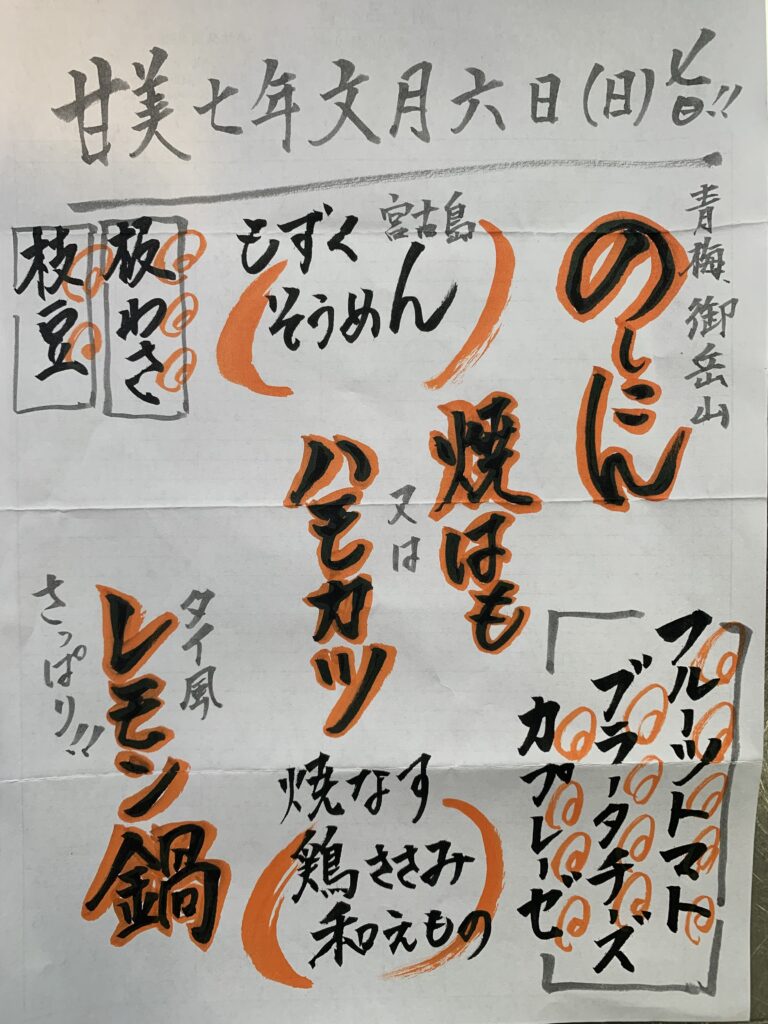 甘美七年文月六日(日)旨!!
青梅、御岳山
のしこん
宮古島
もずく
そうめん
板わさ
枝豆
焼はも
又は
ハモカツ
フルーツトマト
ブラータチーズ
カプレーゼ
焼なす
鶏ささみ
和えもの
タイ風
レモン鍋
さっぱり!!